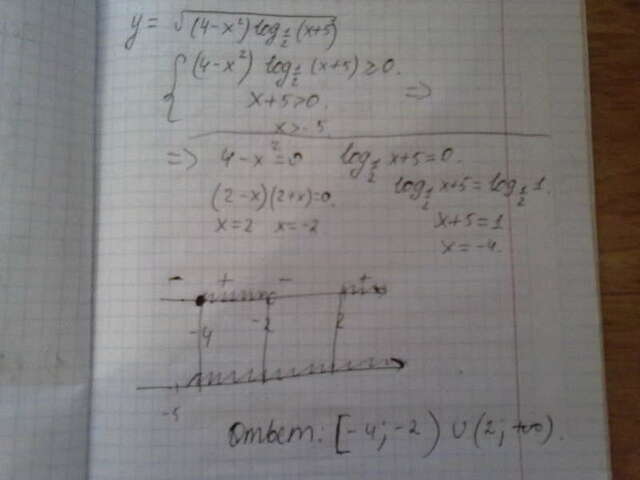 y = √(4-x²) log_{1/2} (x+5)
{ (4-x²) log_{1/2} (x+5) ≥ 0.
x+5>0. =>
x>-5
=> 4-x²=0 log_{1/2} x+5=0.
(2-x)(2+x)=0. log_{1/2} x+5 = log_{1/2} 1.
x=2 x=-2 x+5=1
x=-4.
- + - +
-4 -2 2
-5
Ответ: [-4; -2) ∪ (2; +∞).